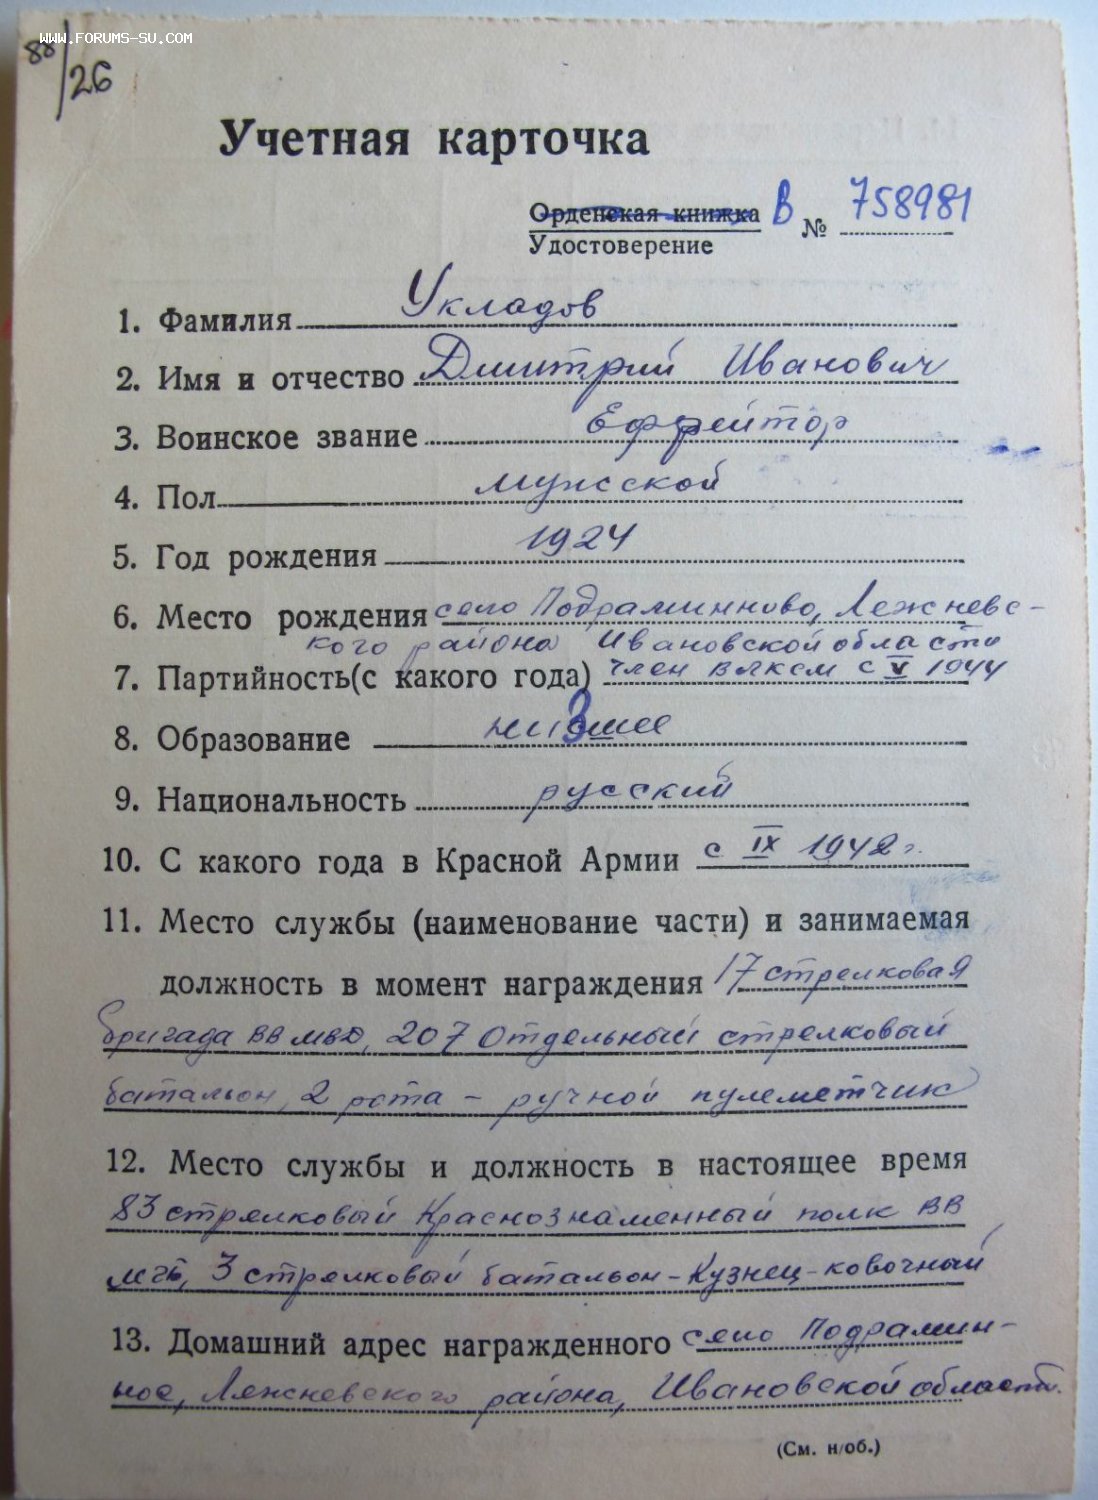 www.forums-su.com
88/26
Учетная карточка
Орденская книжка В № 758981
Удостоверение
1. Фамилия Укладов
2. Имя и отчество Дмитрий Иванович
3. Воинское звание Ефрейтор
4. Пол мужской
5. Год рождения 1924
6. Место рождения село Подраминново, Лежневс-
кого района Ивановской области
7. Партийность(с какого года) член ВЛКСМ с V 1944
8. Образование низшее
9. Национальность русский
10. С какого года в Красной Армии с IX 1942 г.
11. Место службы (наименование части) и занимаемая
должность в момент награждения 17 стрелковая
бригада ВВ МВД, 207 Отдельный стрелковый
батальон, 2 рота – ручной пулеметчик
12. Место службы и должность в настоящее время
83 стрелковый Краснознаменный полк ВВ
МГБ, 3 стрелковый батальон – Кузнец-ковочный
13. Домашний адрес награжденного село Подрамин-
ное, Лежневского района, Ивановской области.
(См. н/об.)